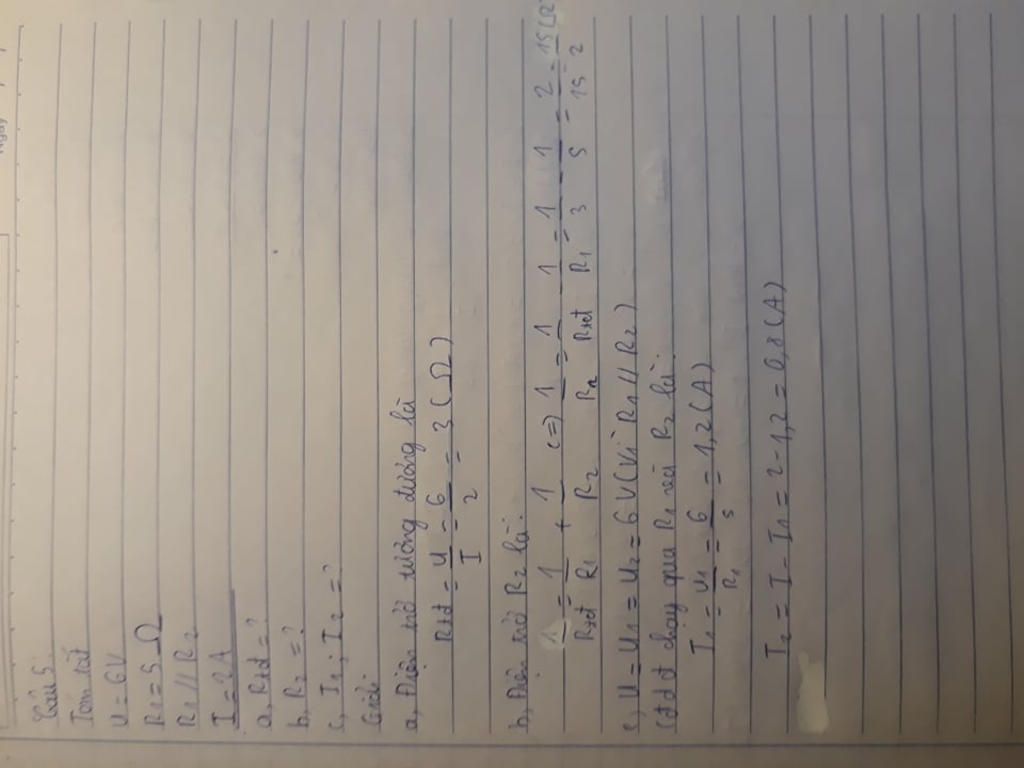 Câu 5
Tóm tắt
U = 6V
R1 = 5 Ω
R1 // R2
I = 2A
a, Rtđ = ?
b, R2 = ?
c, I1; I2 = ?
Giải
a, Điện trở tương đương là
Rtđ = U/I = 6/2 = 3 (Ω)
b, Điện trở R2 là:
1/Rtđ = 1/R1 + 1/R2 <=> 1/R2 = 1/Rtđ - 1/R1 = 1/3 - 1/5 = 2/15 = 15/2
c, U = U1 = U2 = 6V (Vì R1 // R2)
Cđdđ chạy qua R1 và R2 là:
I1 = U1/R1 = 6/5 = 1,2 (A)
I2 = I - I1 = 2 - 1,2 = 0,8 (A)